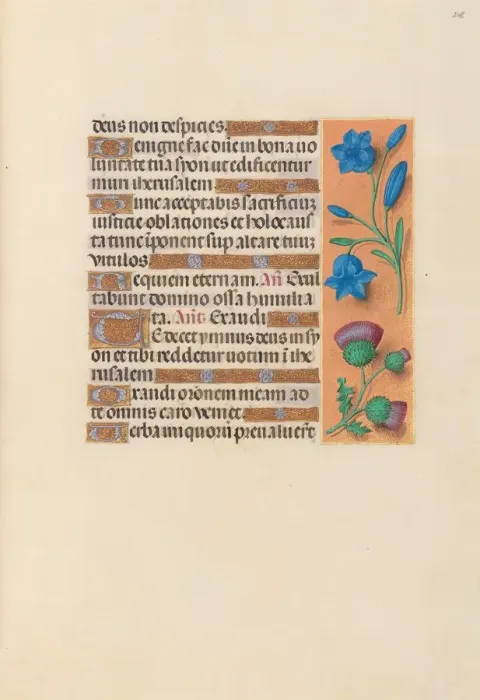 deus non despicies.
Benigne fac dñe in bona uo
luntate tua syon ut edificentur
muri iherusalem
Tunc acceptabis sacrificiuz
iusticie oblationes et holocaus
ta tunc īponent sup altare tuuz
vitulos
Requiem eternam. Añ Exul
tabunt domino ossa humilia
ta. Añt Exaudi
TE decet ymnus deus in sy
on et tibi reddetur uotum ī ihe
rusalem
Exaudi orōnem meam ad
te omnis caro veniet.
Verba iniquorū preualuerūt